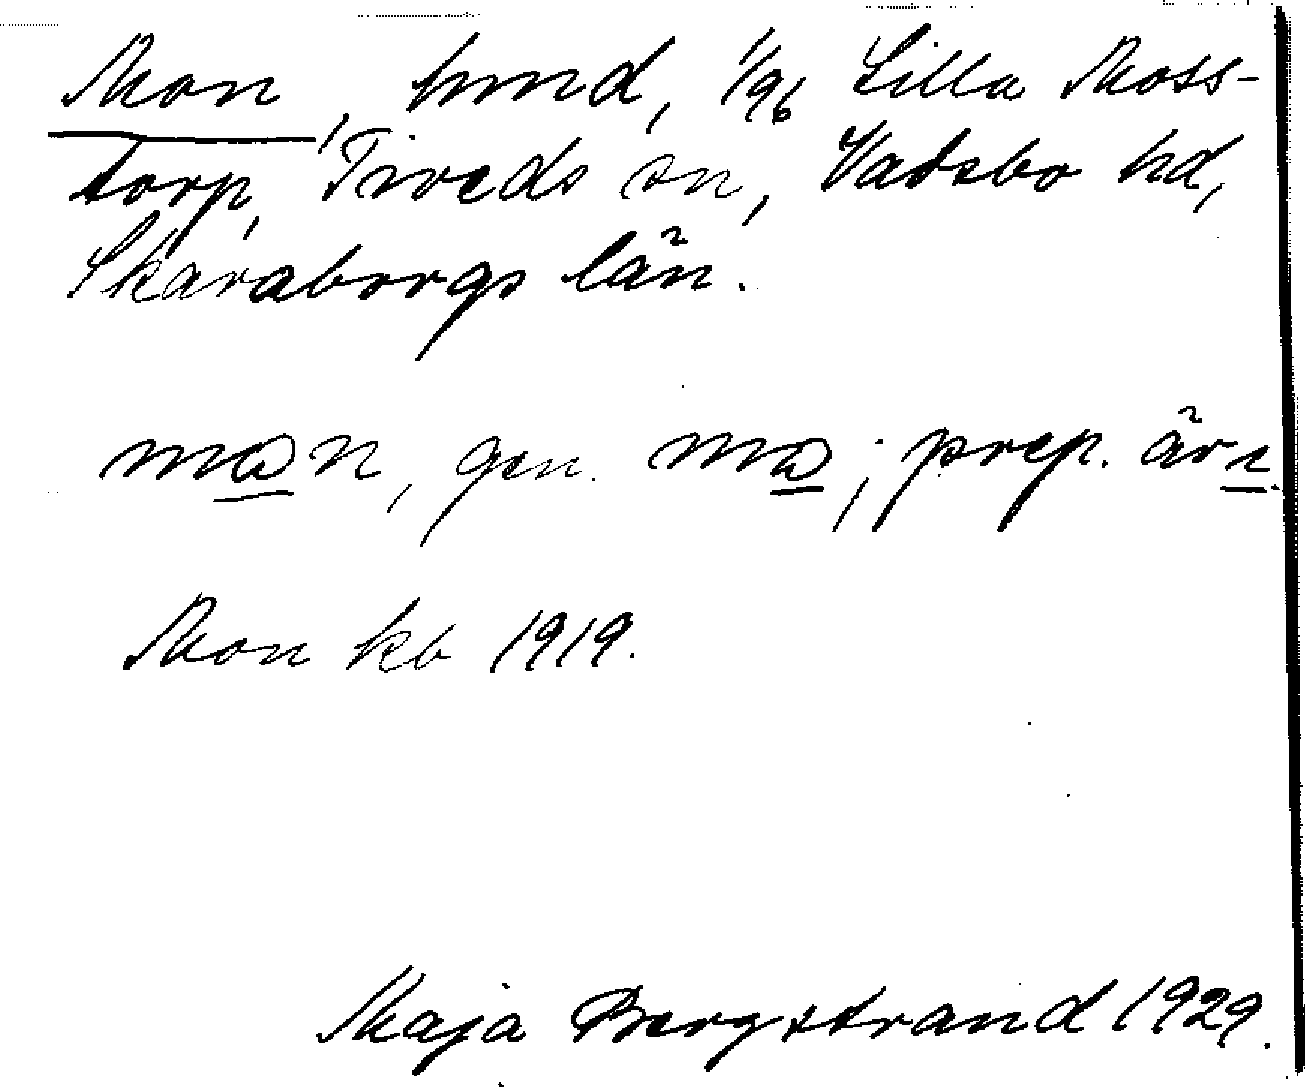 Mon, hmd, 1/96 Lilla Moss-
torp, Tiveds sn, Vadsbo hd,
Skaraborgs län.
man, gen. ma; prep. är i.
Mon kb 1919.
Maja Bergstrand 1929.